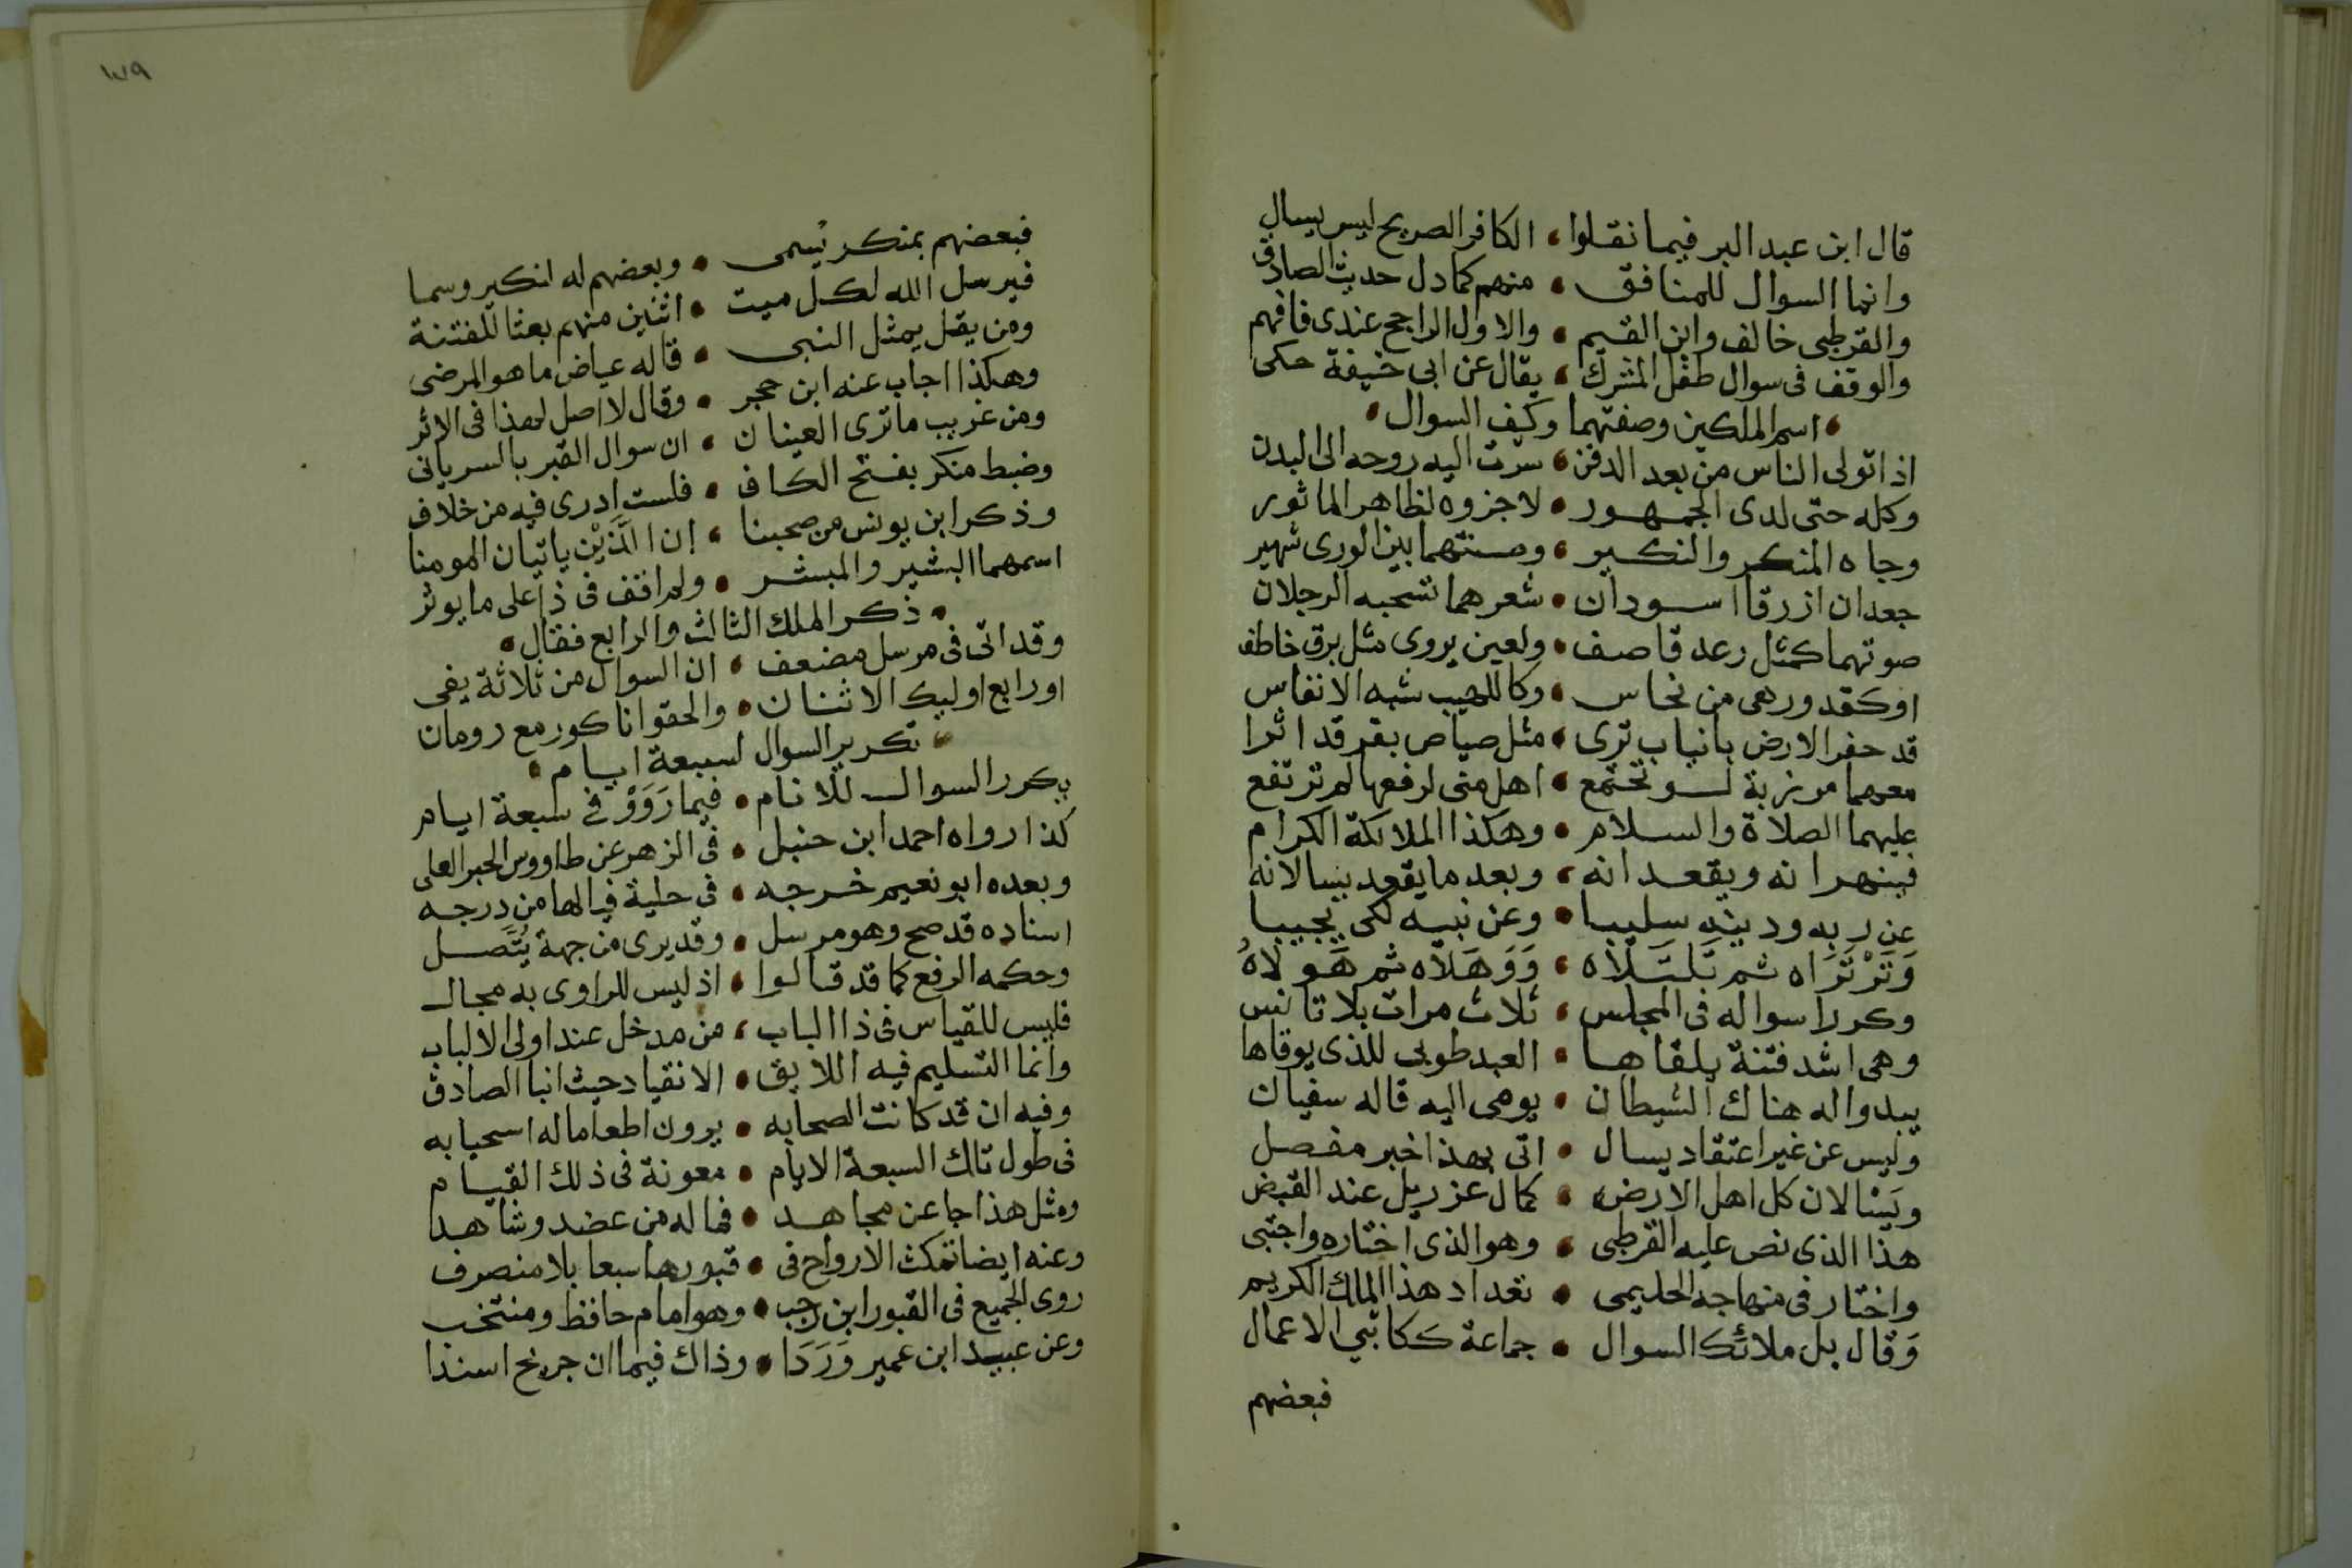 قال ابن عبد البر فيما نقلوا، الكافر الصريح ليس يسال
وانما السوال للمنافق • منهم كما دل حديث الصادق
والقرطبى خالف وابن القيم • والاول الراجح عندى فافهم
والوقف فى سوال طفل المشرك، يقال عن ابى حنيفة حكى
• اسم الملكين وصفتهما وكيف السوال •
اذا تولى الناس من بعد الدفن، سرت اليه روحه الى البدن
وكله حتى لدى الجمهور • لا جزوه لظاهر الماثور
وجاه المنكر والنكير • وصفتهما بين الورى شهير
جعدان ازرقا اسودان • شعرهما تسحبه الرجلان
صوتهما كمثل رعد قاصف • ولعين يروى مثل برق خاطف
اوكقدور هى من نحاس • وكاللهيب شبه الانفاس
قد حفر الارض بانياب ترى • مثل صياص بقر قد اثرا
معهما مرزبة لو تجتمع • اهل منى لرفعها لم ترتفع
عليهما الصلاة والسلام • وهكذا الملائكة الكرام
فينهرانه ويقعدانه، وبعد ما يقعد يسالانه
عن ربه ودينه سليبا • وعن نبيه لكى يجيبا
وَتَرْتَرَاه ثم تَلتَلاه، وَوَهَلاه ثم هَولاهُ
وكررا سواله فى المجلس، ثلاث مرات بلا تانس
وهى اشد فتنة يلقاها • العبد طوبى للذى يوقاها
يبدوا له هناك الشيطان • يومى اليه قاله سفيان
وليس عن غير اعتقاد يسال • اتى بهذا خبر مفصل
ويَسْالان كل اهل الارض • كمال عزريل عند القبض
هذا الذى نص عليه القرطبى • وهو الذى اختاره واجتبى
واختار فى منهاجه الحليمى • تعداد هذا الملك الكريم
وَقال بل ملائك السوال • جماعة ككاتبي الاعمال
فبعضهم
١٧٩
فبعضهم بمنكر يُسمى • وبعضهم له انكير وسما
فيرسل الله لكل ميت • اثنين منهم بعثا للفتنة
ومن يقل يمثل النبى • قاله عياض ما هو المرضى
وهكذا اجاب عنه ابن حجر • وقال لا اصل لهذا فى الاثر
ومن غريب ما ترى العينان • ان سوال القبر بالسريانى
وضبط منكر بفتح الكاف • فلست ادرى فيه من خلاف
وذكر ابن يونس من صحبنا • ان الَّذَيْن ياتيان المومنا
اسمهما البشير والمبشر • ولم اقف فى ذا على ما يوثر
• ذكر الملك الثالث والرابع فقال •
وقد اتى فى مرسل مضعف • ان السوال من ثلاثة يفى
اورابع اوليك الاثنان • والحقوا ناكور مع رومان
• تكرير السوال لسبعة ايام •
يكرر السوال للانام • فيما رَوَوْ في سبعة ايام
كذا رواه احمد ابن حنبل • فى الزهر عن طاووس الحبر العلى
وبعده ابو نعيم خرجه • فى حلية فيالها من درجه
اسناده قد صح وهو مرسل • وقد يرى من جهة يُتَّصل
وحكمه الرفع كما قد قالوا • اذ ليس للراوى به مجال
فليس للقياس فى ذا الباب، من مدخل عند اولى الالباب
وانما التسليم فيه اللايق • الانقياد حيث انبا الصادق
وفيه ان قد كانت الصحابه • يرون اطعاما له اسحيابه
فى طول تلك السبعة الايام • معونة فى ذلك القيام
ومثل هذا جا عن مجاهد • فما له من عضد وشاهد
وعنه ايضا تمكث الارواح فى • قبورها سبعا بلا منصرف
روى الجميع فى القبور ابن رجب • وهو امام حافظ ومنتخب
وعن عبيد ابن عمير وَرَدَا • وذاك فيما ان جريح اسندا